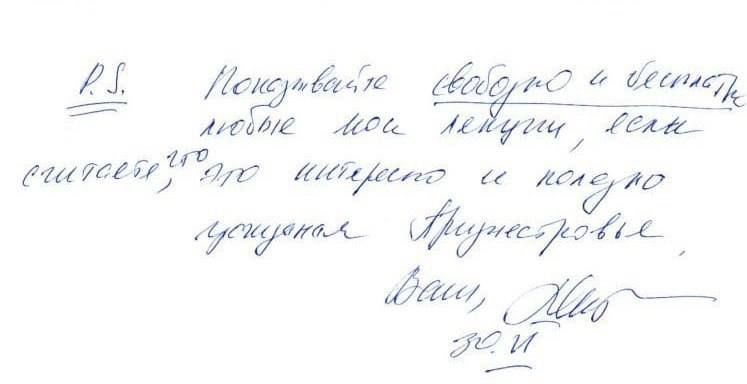 P.S. Показывайте свободно и бесплатно
любые мои лекции, если
считаете, что это интересно и полезно
гражданам Приднестровья.
Ваш,
30.VI